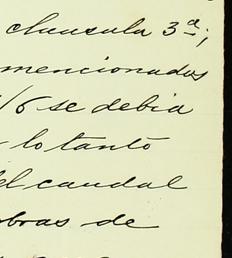 clausula 3ª;
mencionados
1/6 se debia
lo tanto
del caudal
obras de